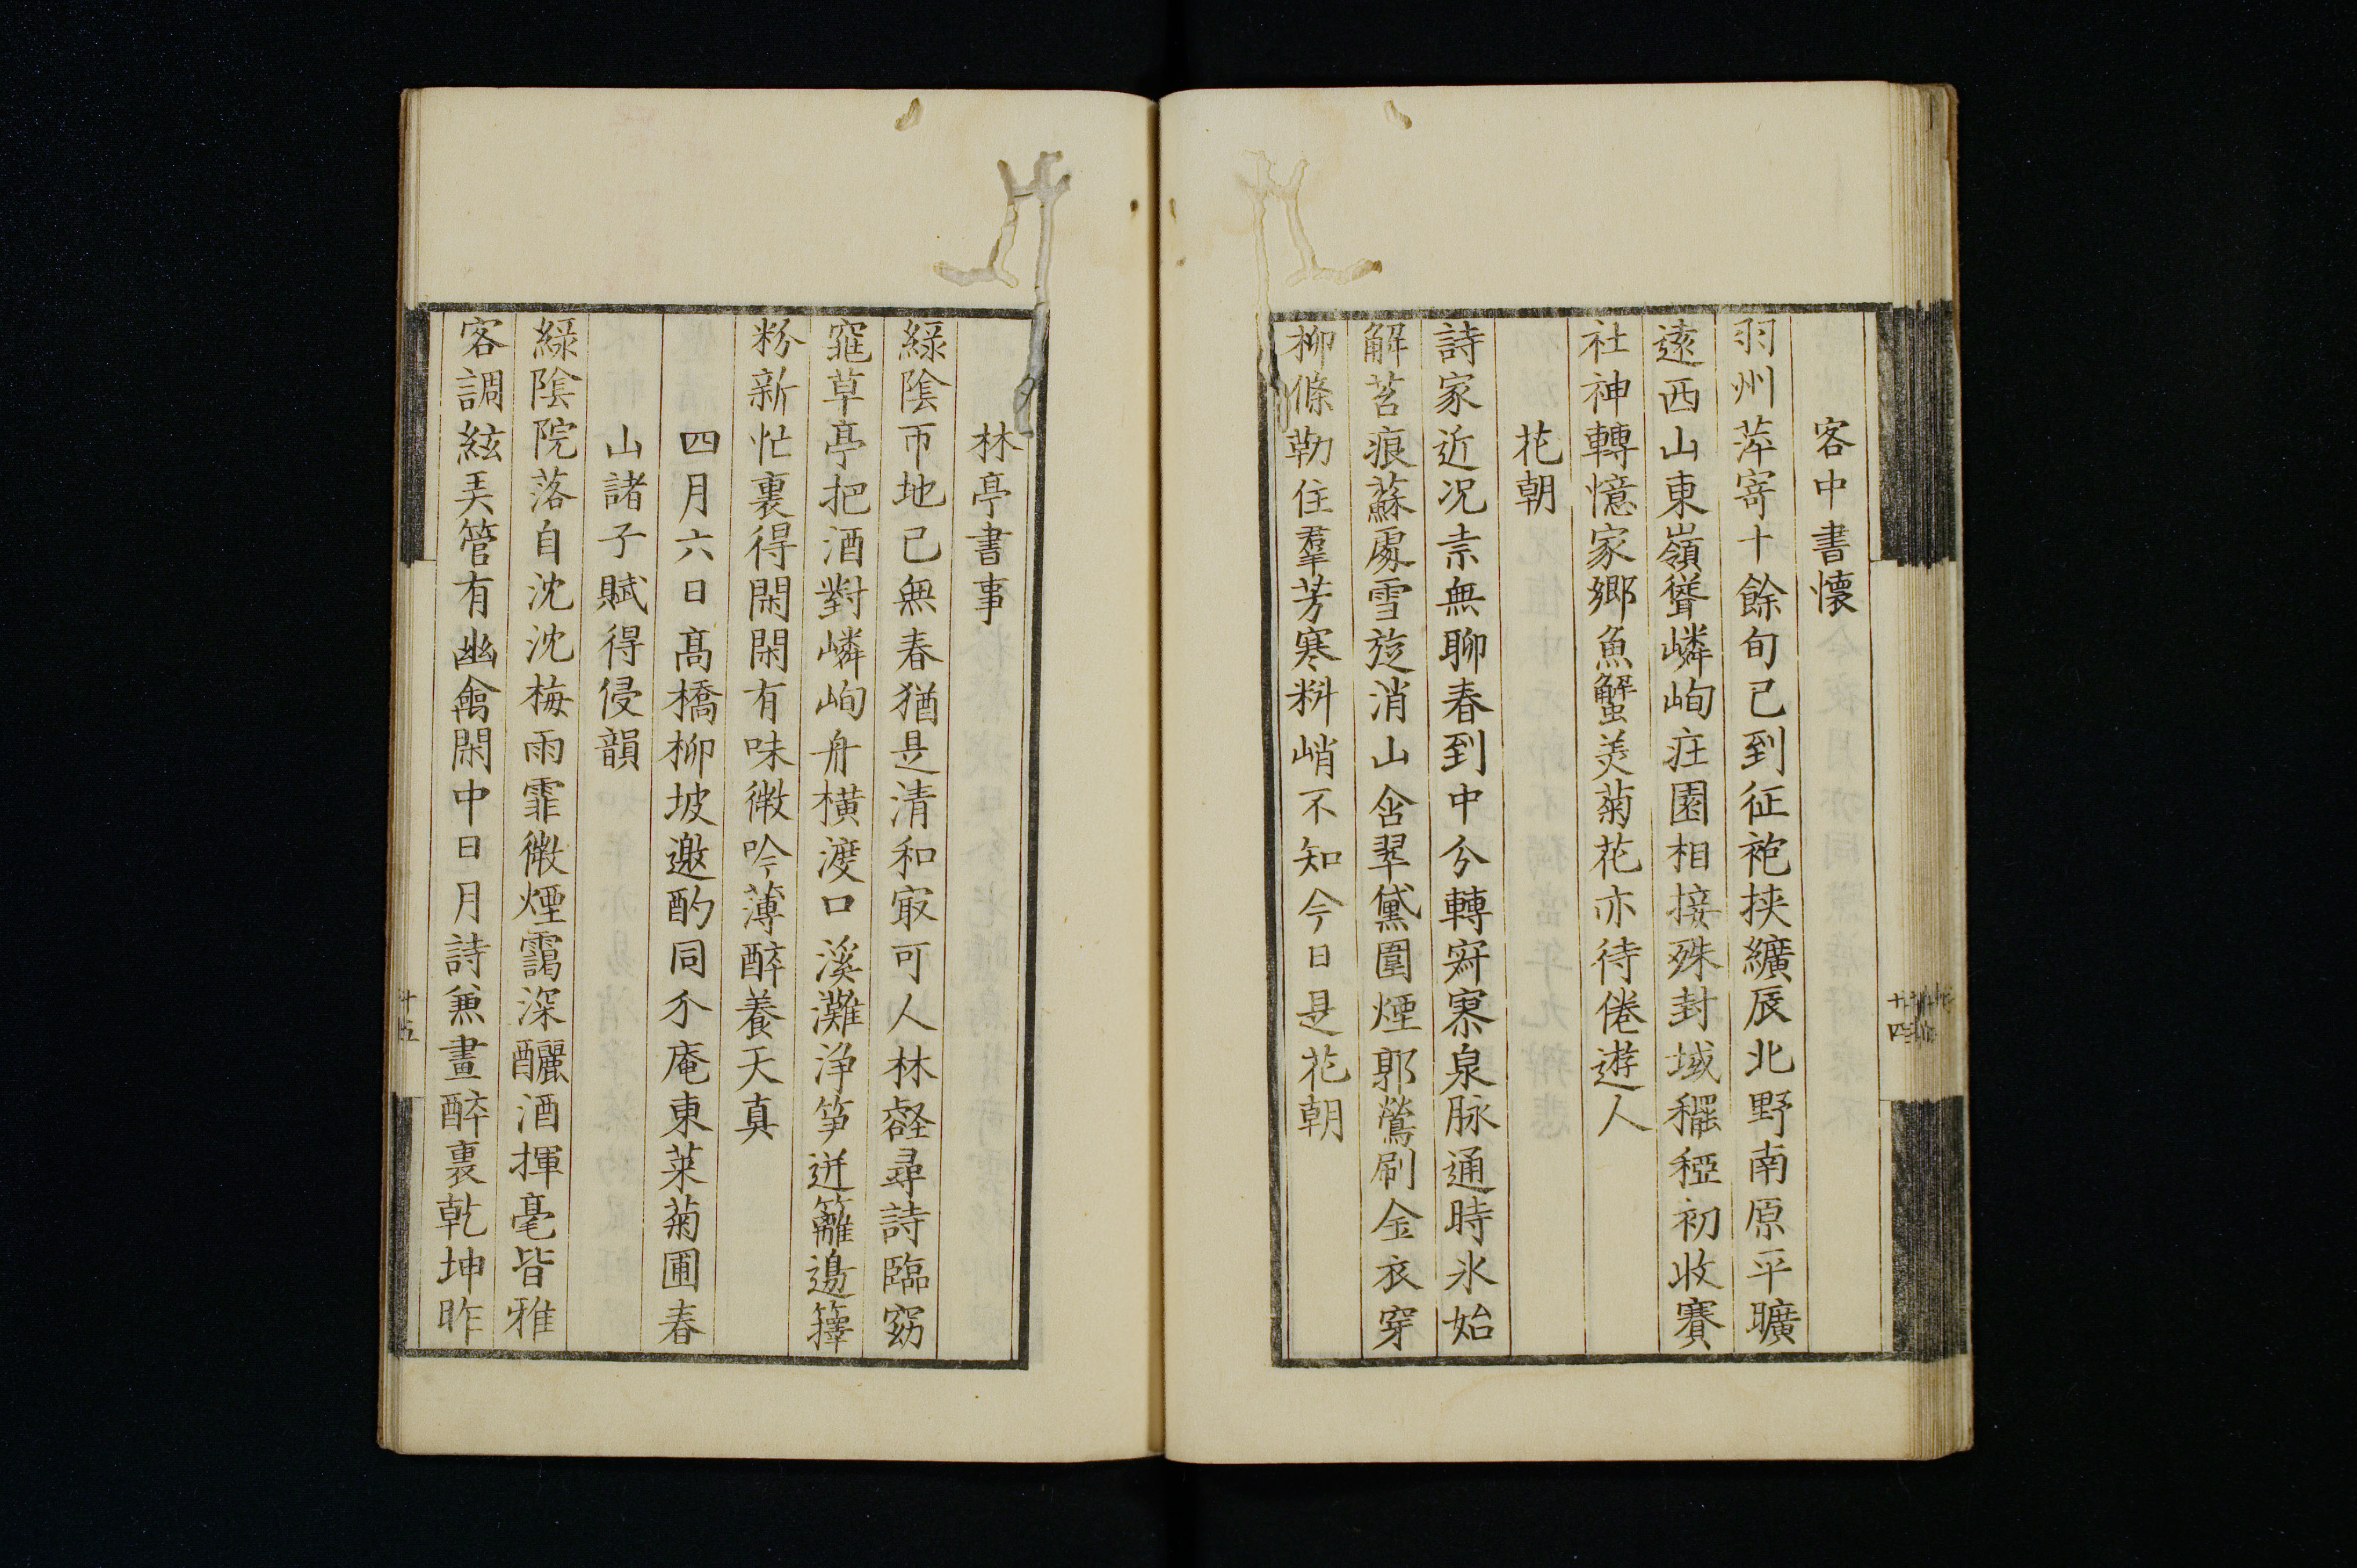 客中書懷
羽州萍寄十餘旬已到征袍挾纊辰北野南原平曠
遠西山東嶺聳嶙峋庄園相接殊封域䆉稏初收賽
社神轉憶家鄉魚蟹美菊花亦待倦遊人
花朝
詩家近況素無聊春到中分轉寂寥泉脉通時氷始
解苔痕蘇處雪旋消山含翠黛圍煙郭鶯刷金衣穿
柳條勒住羣芳寒料峭不知今日是花朝
十四
林亭書事
綠陰帀地已無春猶是清和㝡可人林壑尋詩臨窈
窕草亭把酒對嶙峋舟橫渡口溪灘淨笋迸籬邊籜
粉新忙裏得閑閑有味微吟薄醉養天真
四月六日高橋柳坡邀酌同介庵東萊菊圃春
山諸子賦得侵韻
綠陰院落自沈沈梅雨霏微煙靄深釃酒揮毫皆雅
客調絃弄管有幽禽閑中日月詩兼畫醉裏乾坤昨
十五